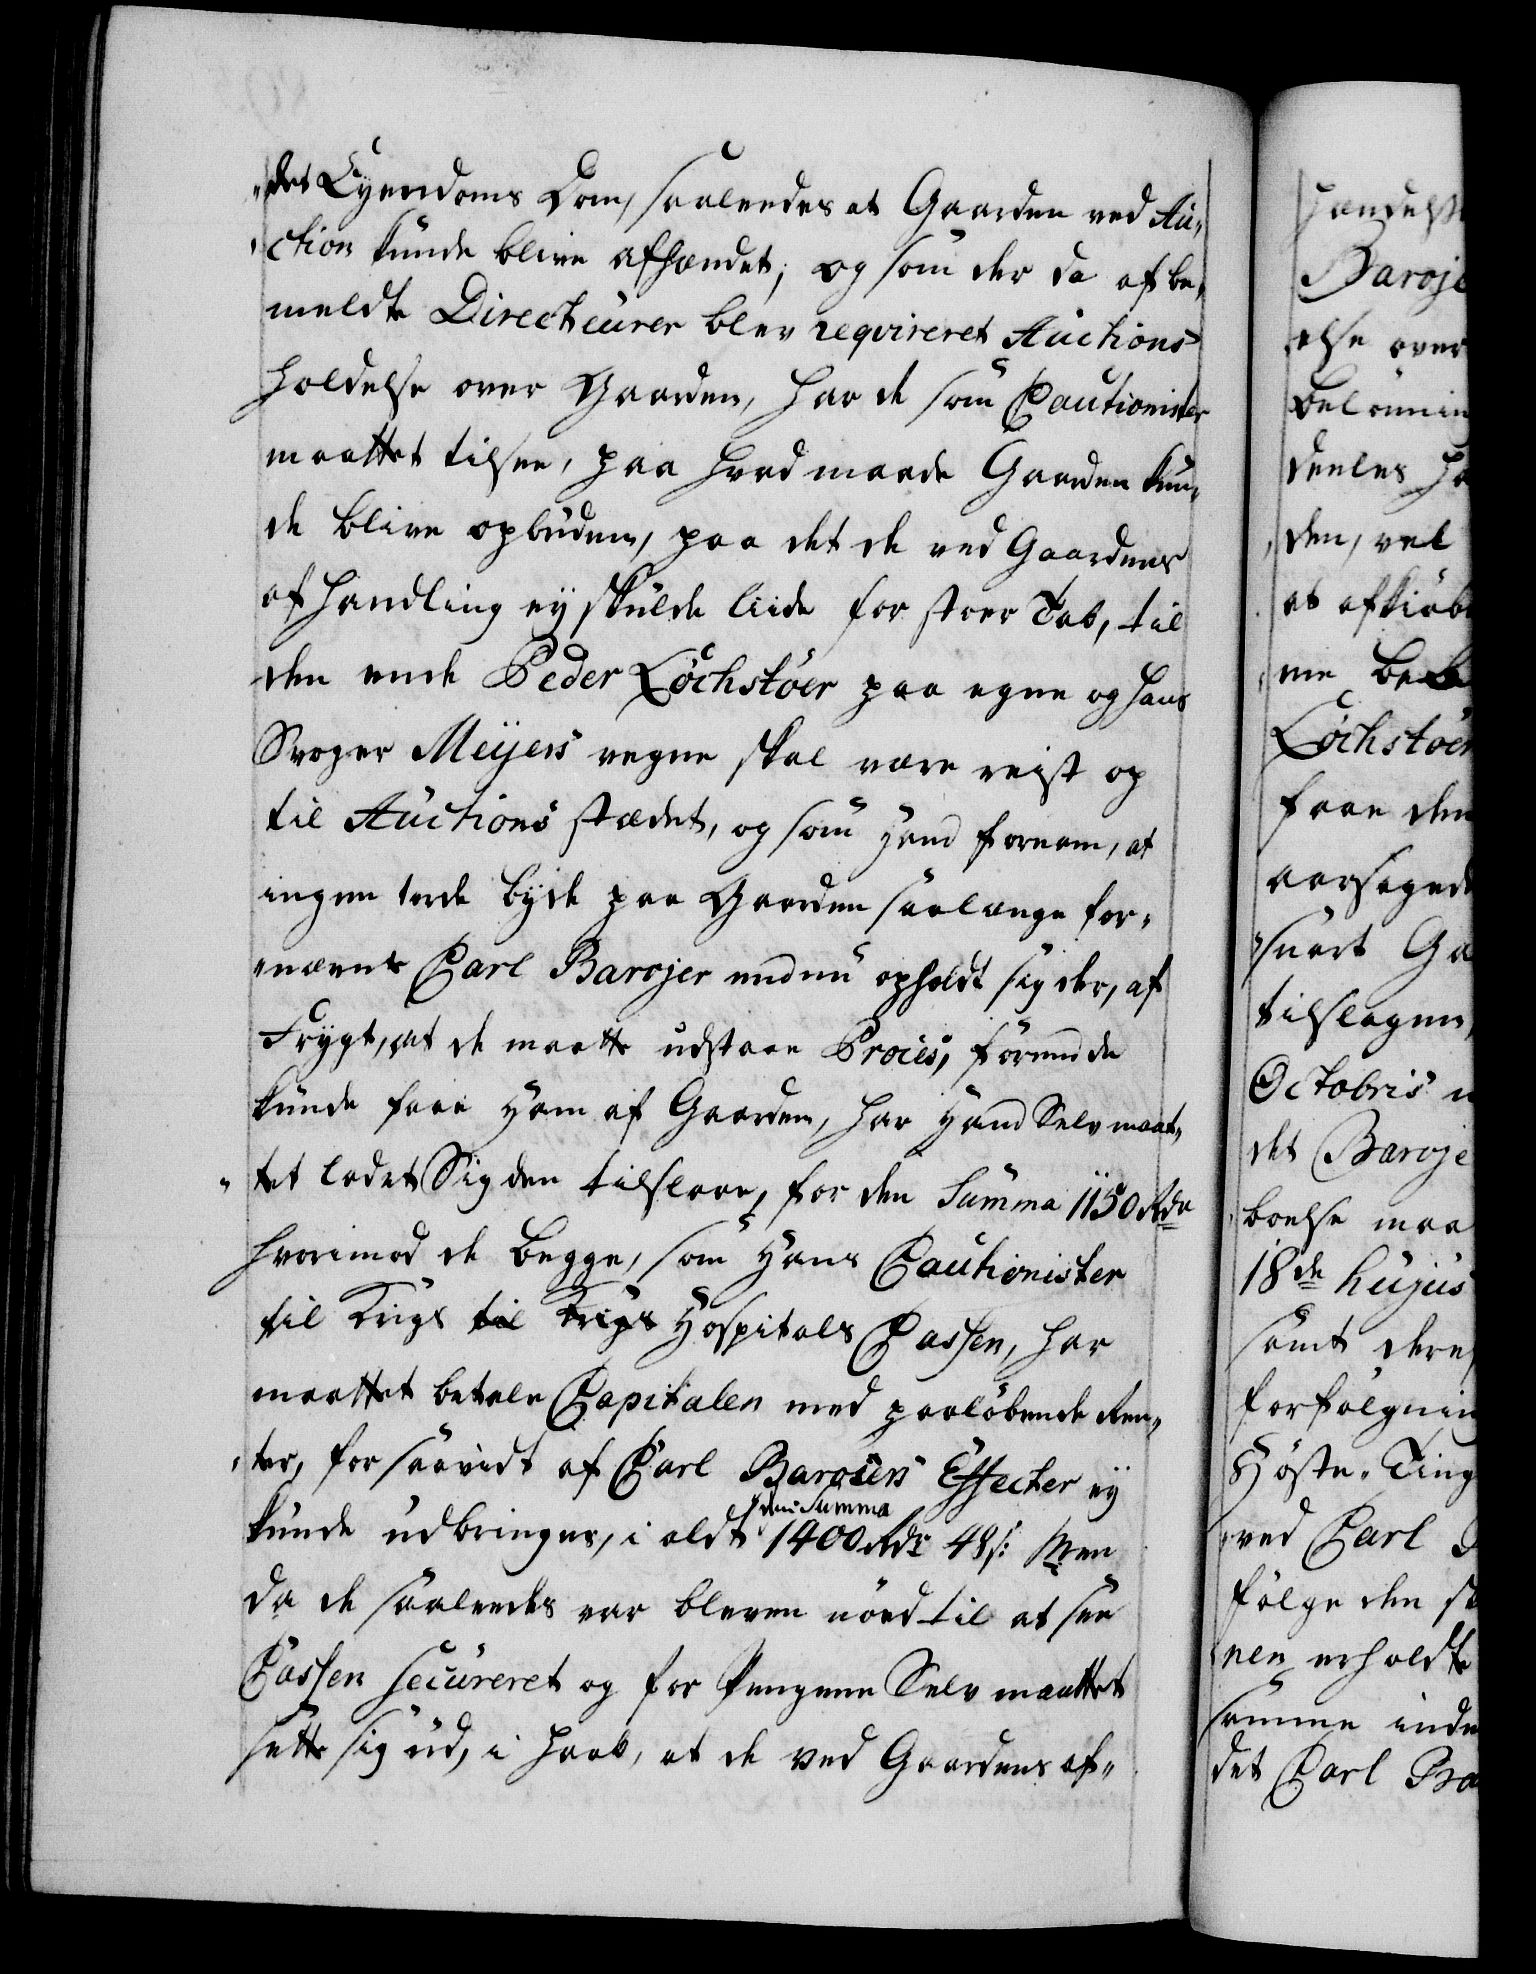 det Eyendoms Dom, saaleedes at Gaarden ved Au-
ction kunde blive afhændet; og som der da af be-
meldte Directeurer blev reqvireret Auctions
holdelse over Gaarden, har de som Cautionister
maattet tilsee, paa hvad maade Gaarden kun-
de blive opbuden, paa det de ved Gaardens
afhandling ey skulde liide for stoer Tab, til
den ende Peder Löchstöer paa egne og hans
Svoger Meyers vegne skal være reist op
til Auctions stædet, og som hand fornam, at
ingen torde byde paa Gaarden saalænge for-
nævnte Carl Barojer endnu opholdt sig der, af
Frygt, at de maatte udstaae Proces, förend de
kunde faae ham af Gaarden, har hand Selv maat-
tet ladet Sig den tilslaae, for den Summa 1150 Rdr
hvorimod de begge, som hans Cautionister
til Krigs til Krigs Hospitals Cassen, har
maattet betale Capitalen med paalöbende Ren-
ter, for saavidt af Carl Barojers Effecter ey
kunde udbringes, i aldt den Summa 1400 Rdr 48 s: Men
da de saaleedes var bleven nöed til at see
Cassen secureret og for Pengene Selv maattet
sette sig ud, i haab, at de ved Gaardens af-
hændelse
Baroje
else over
belönnin
deeles ha
den, vel
at afkiöb
me be
Löchstöer
faae den
aarsagede
snart Ga
tilslagen,
Octobris
det Baroje
boelse maa
18de hujus
samt dere
forfölgnin
Höste-Ting
ved Carl
fölge den
nen erholdte
samme inde
det Carl Ba